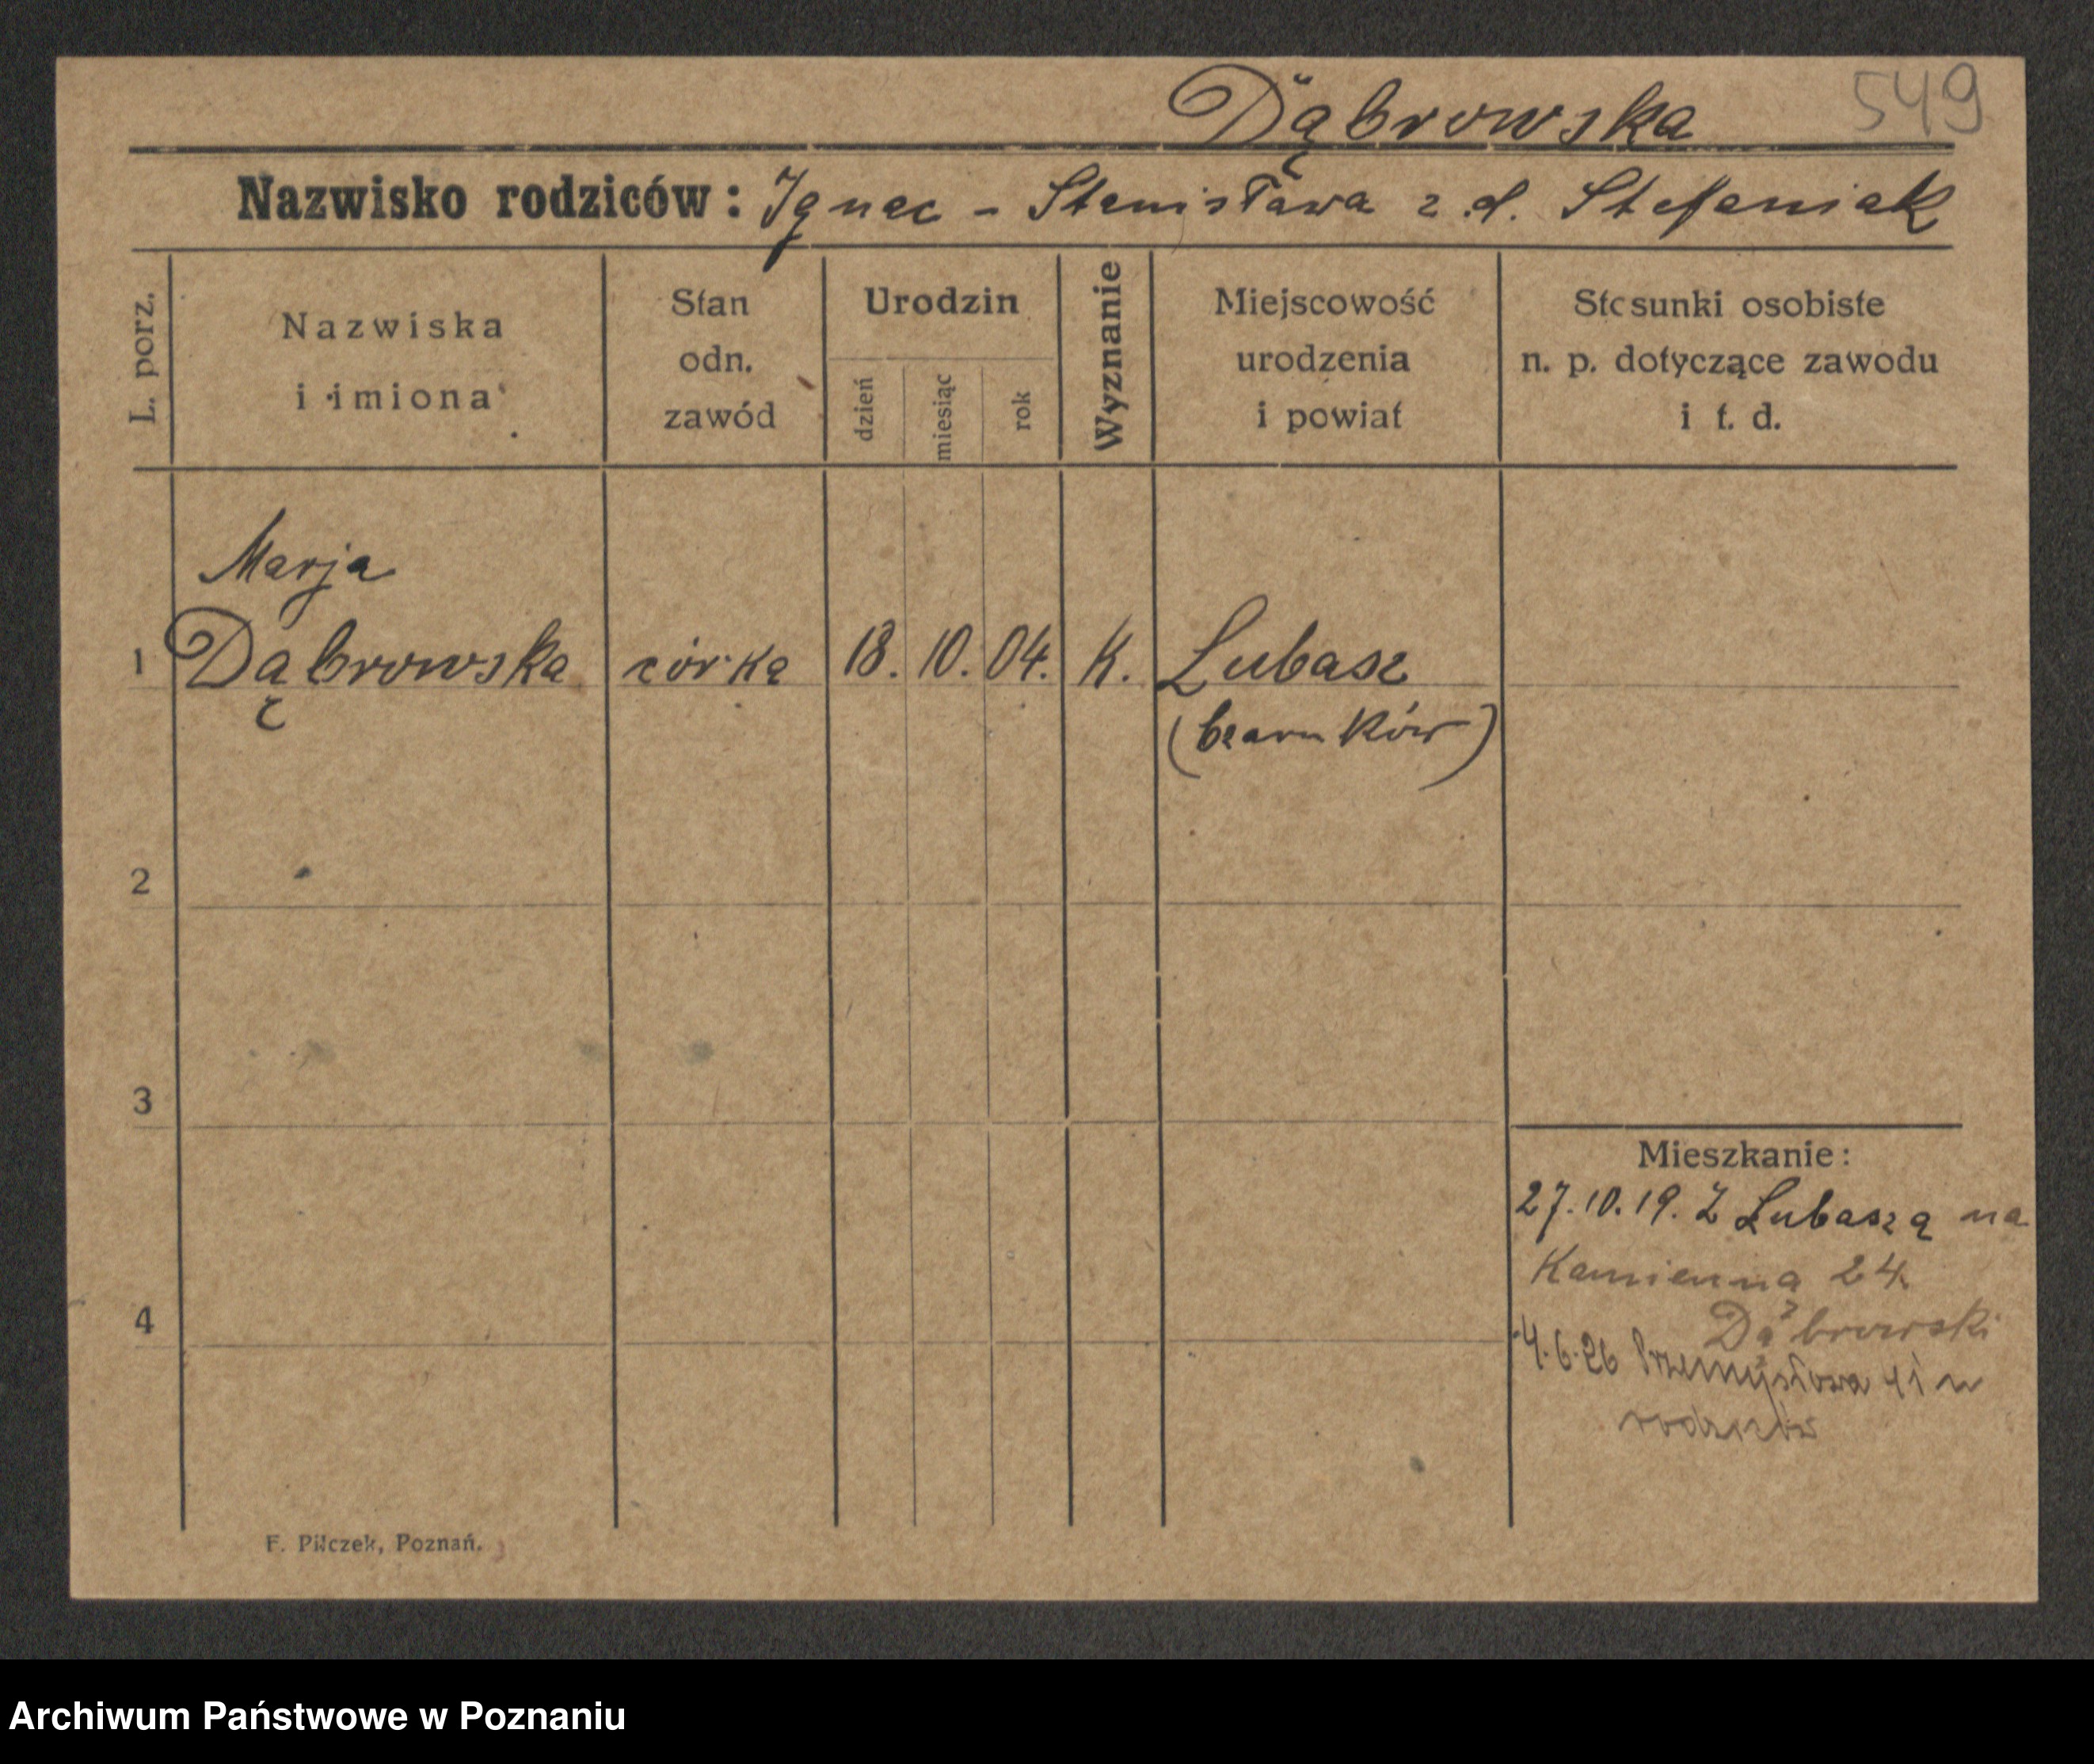 Dąbrowska 549
Nazwisko rodziców: Ignac - Stanisława z.d. Stefaniak
L. porz.
Nazwiska
i imiona
Stan
odn.
zawód
Urodzin
dzień
miesiąc
rok
Wyznanie
Miejscowość
urodzenia
i powiat
Stosunki osobiste
n. p. dotyczące zawodu
i t. d.
Marja
1 Dąbrowska córka 18. 10. 04. K. Lubasz
(czarnków)
2
3
4
Mieszkanie:
27.10.19. Z Lubasza na
Kamienna 24
Dąbrowski
4.6.26 Przemysłowa 41 u
rodziców
F. Pilczek, Poznań.
Archiwum Państwowe w Poznaniu